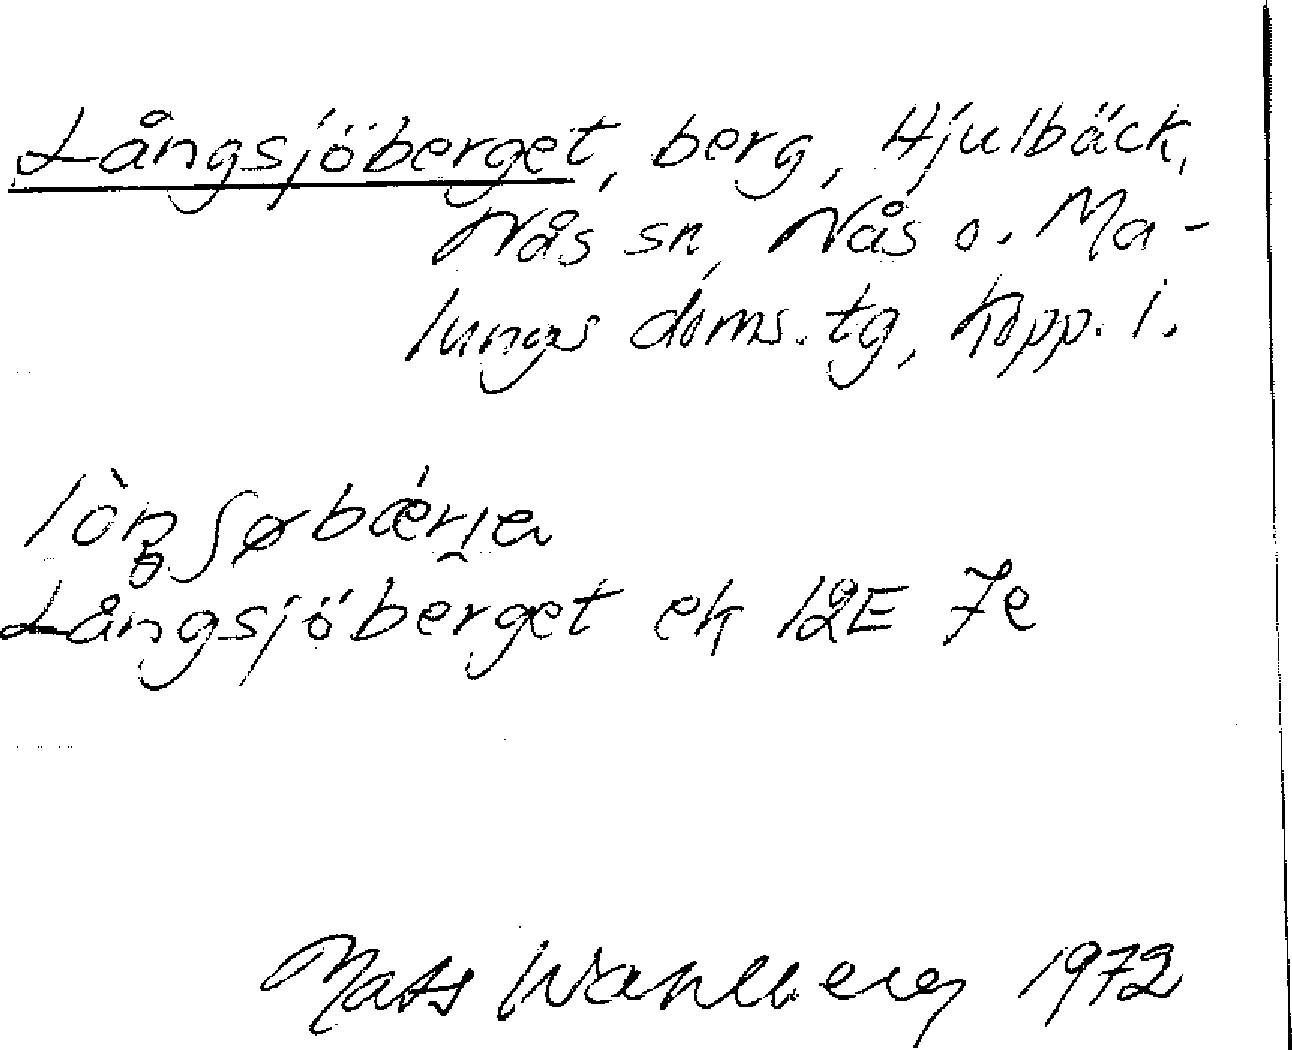 Långsjöberget, berg, Hjulbäck,
Nås sn, Nås o. Ma-
lungs doms.tg, Kopp. l.
Långsjöberget ek 12E 7e
Mats Wahlberg 1972